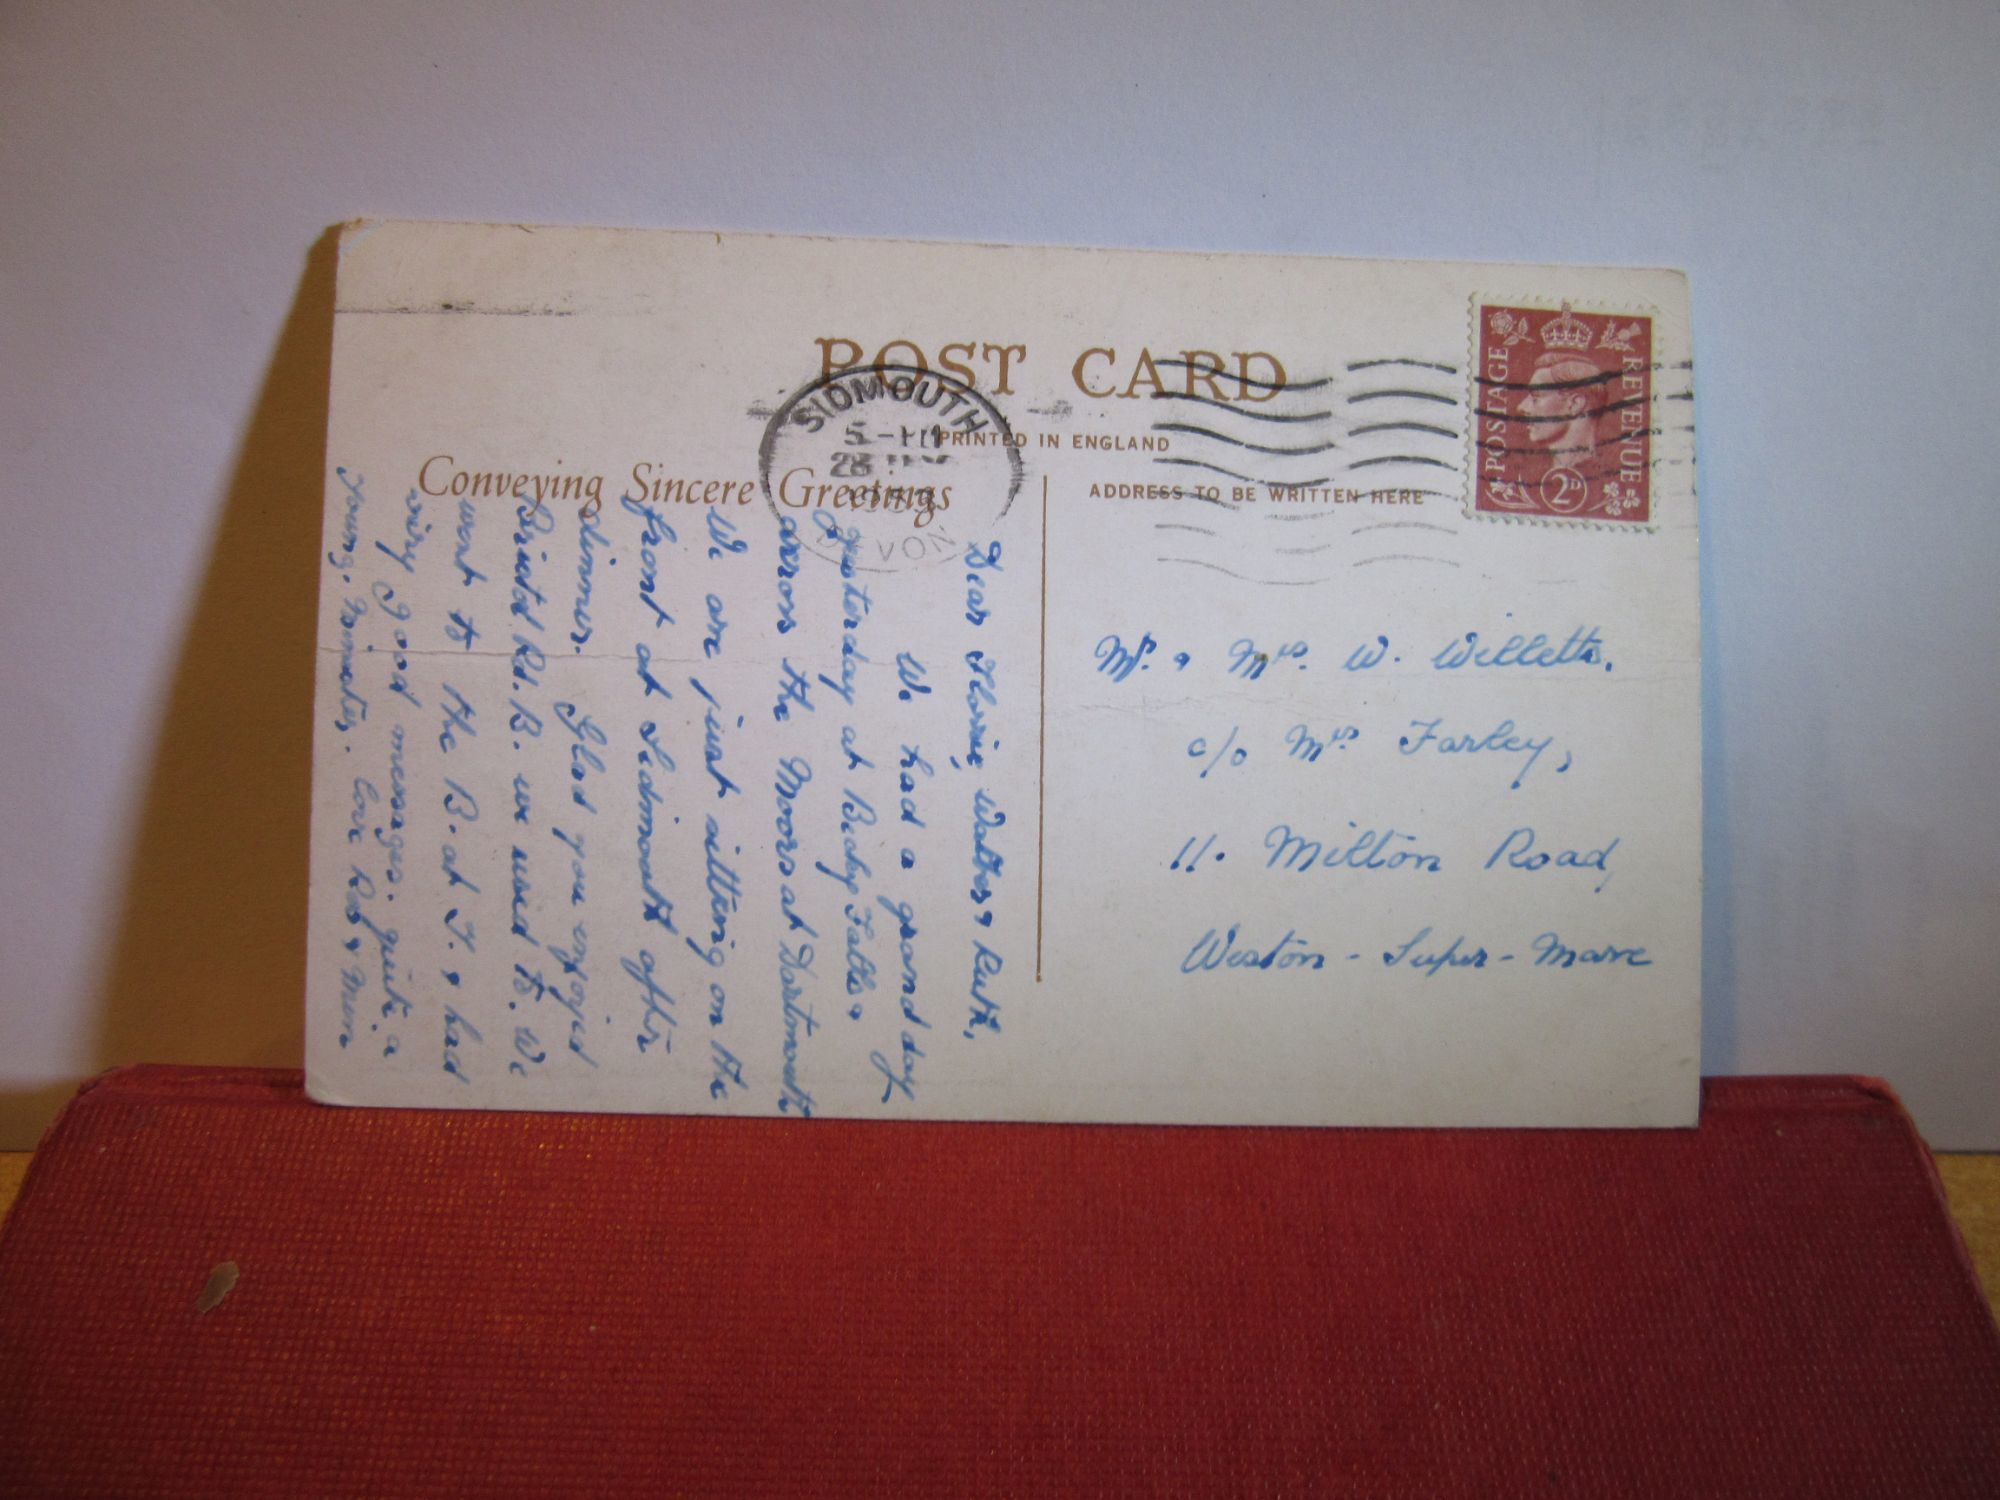 POST CARD
PRINTED IN ENGLAND
Conveying Sincere Greetings
ADDRESS TO BE WRITTEN HERE
SIDMOUTH
DEVON
POSTAGE
REVENUE
2D
Mr. & Mrs. W. Willetts.
c/o Mrs Farley,
11. Milton Road,
Weston - Super - Mare
Dear Florrie, Walter & Ruth,
We had a grand day
yesterday at Becky Falls &
across the Moors at Dartmouth
We are just sitting on the
front at Sidmouth after
dinner. Glad you enjoyed
Bristol Rd. B. we used to. We
went to the B. at T. & had
very good messages. quite a
young. Love &